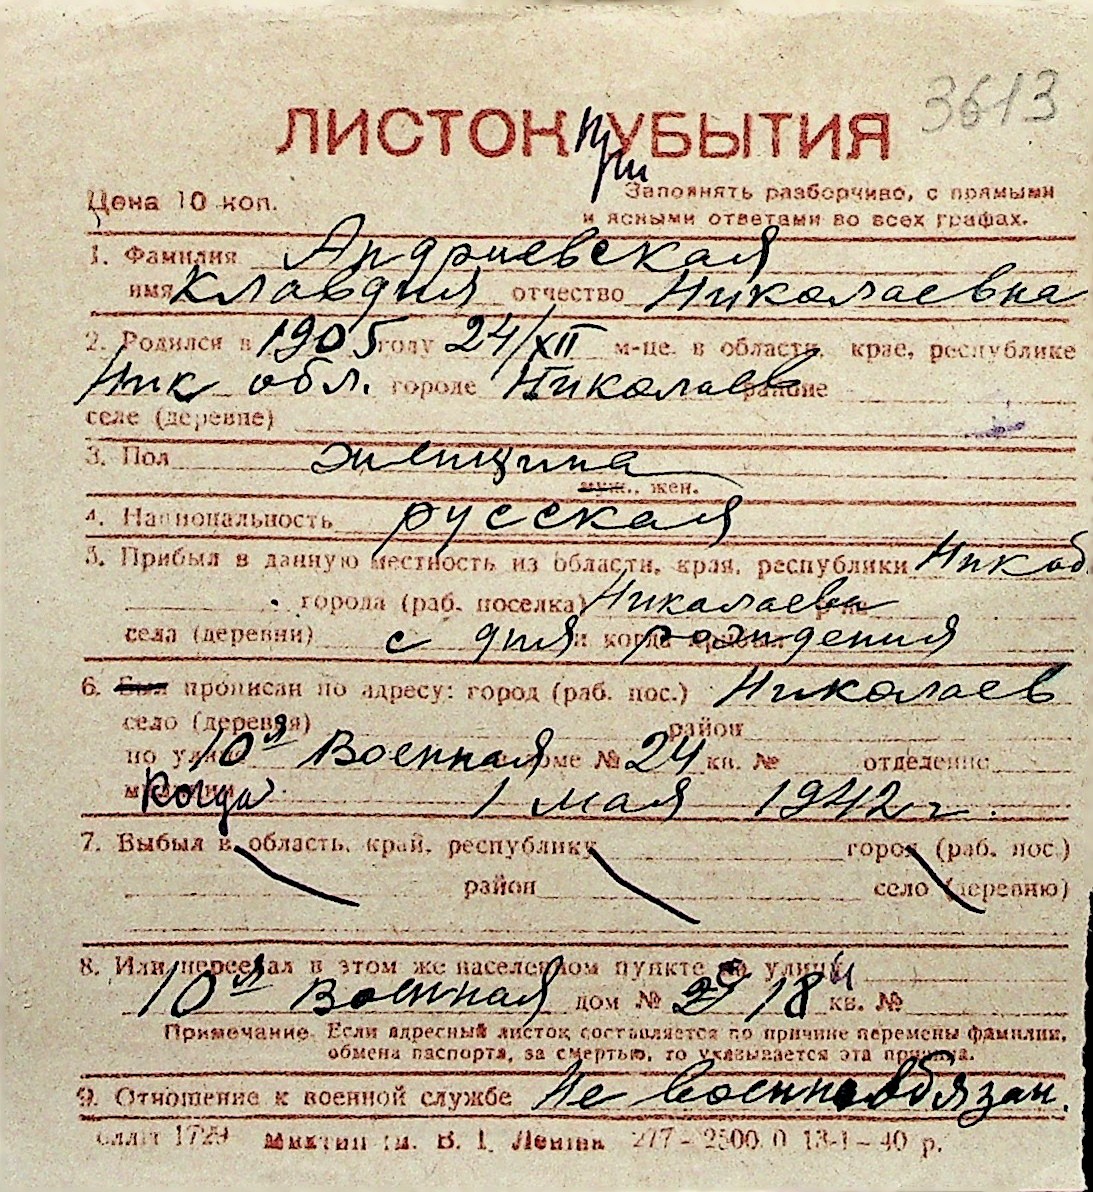 3613
ЛИСТОК при УБЫТИЯ
Цена 10 коп. Заполнять разборчиво, с прямыми
и ясными ответами во всех графах.
1. Фамилия Андриевская
имя Клавдия отчество Николаевна
2. Родился в 1905 году 24/XII м-це. в области, крае, республике
Ник обл. городе Николаев районе
селе (деревне)
3. Пол женщина
муж., жен.
4. Национальность русская
5. Прибыл в данную местность из области, края, республики Ник об.
города (раб. поселка) Николаева
села (деревни) с дня и когда рождения
6. Был прописан по адресу: город (раб. пос.) Николаев
село (деревня) район
по улице 10я Военная доме № 24 кв. № отделение
милиции Когда 1 мая 1942 г.
7. Выбыл в область, край, республику город (раб. пос.)
район село (деревню)
8. Или переехал в этом же населенном пункте по улице
10я Военная дом № 18 кв. №
Примечание. Если адресный листок составляется по причине перемены фамилии,
обмена паспорта, за смертью, то указывается эта причина.
9. Отношение к военной службе Не военнообязан.
1729 В. І. Леніна 277–2500.0 13-1–40 р.